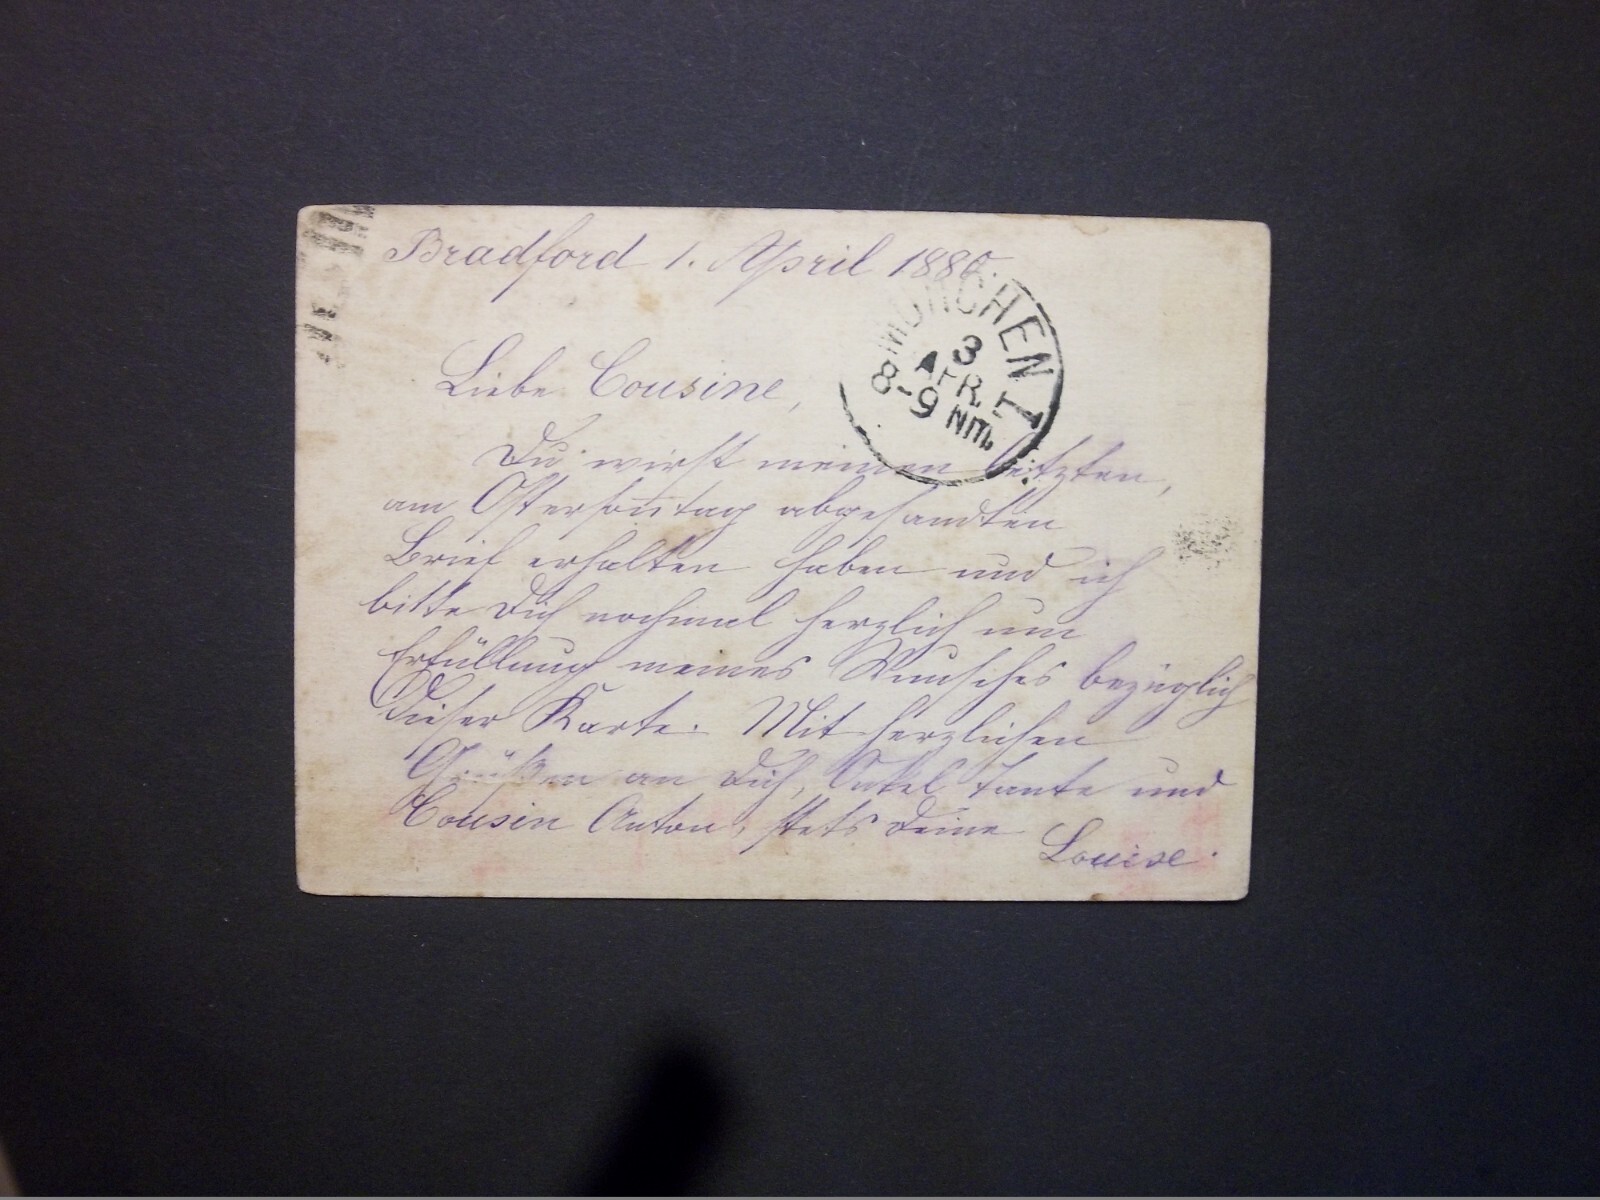 Bradford 1. April 1880.
MÜNCHEN I
3
APR.
8-9 NM.
Liebe Cousine,
Du wirst meinen letzten,
am Ostersonntag abgesandten
Brief erhalten haben und ich
bitte Dich nochmal herzlich um
Erfüllung meines Wunsches bezüglich
dieser Karte. Mit herzlichen
Grüßen an Dich, Onkel Tante und
Cousin Anton, stets Deine
Louise.